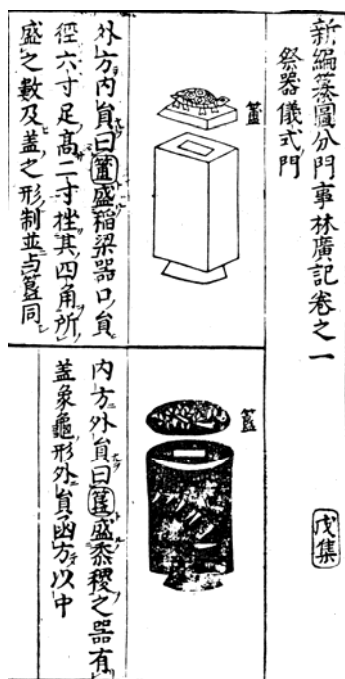 新編纂圖分門事林廣記卷之一 戊集
祭器儀式門
簠
外方内員曰簠盛稻梁器口員
徑六寸足高二寸挫其四角所
盛之數及盖之形制並与簋同
簋
内方外員曰簋盛黍稷之器有
盖象龜形外員函方以中